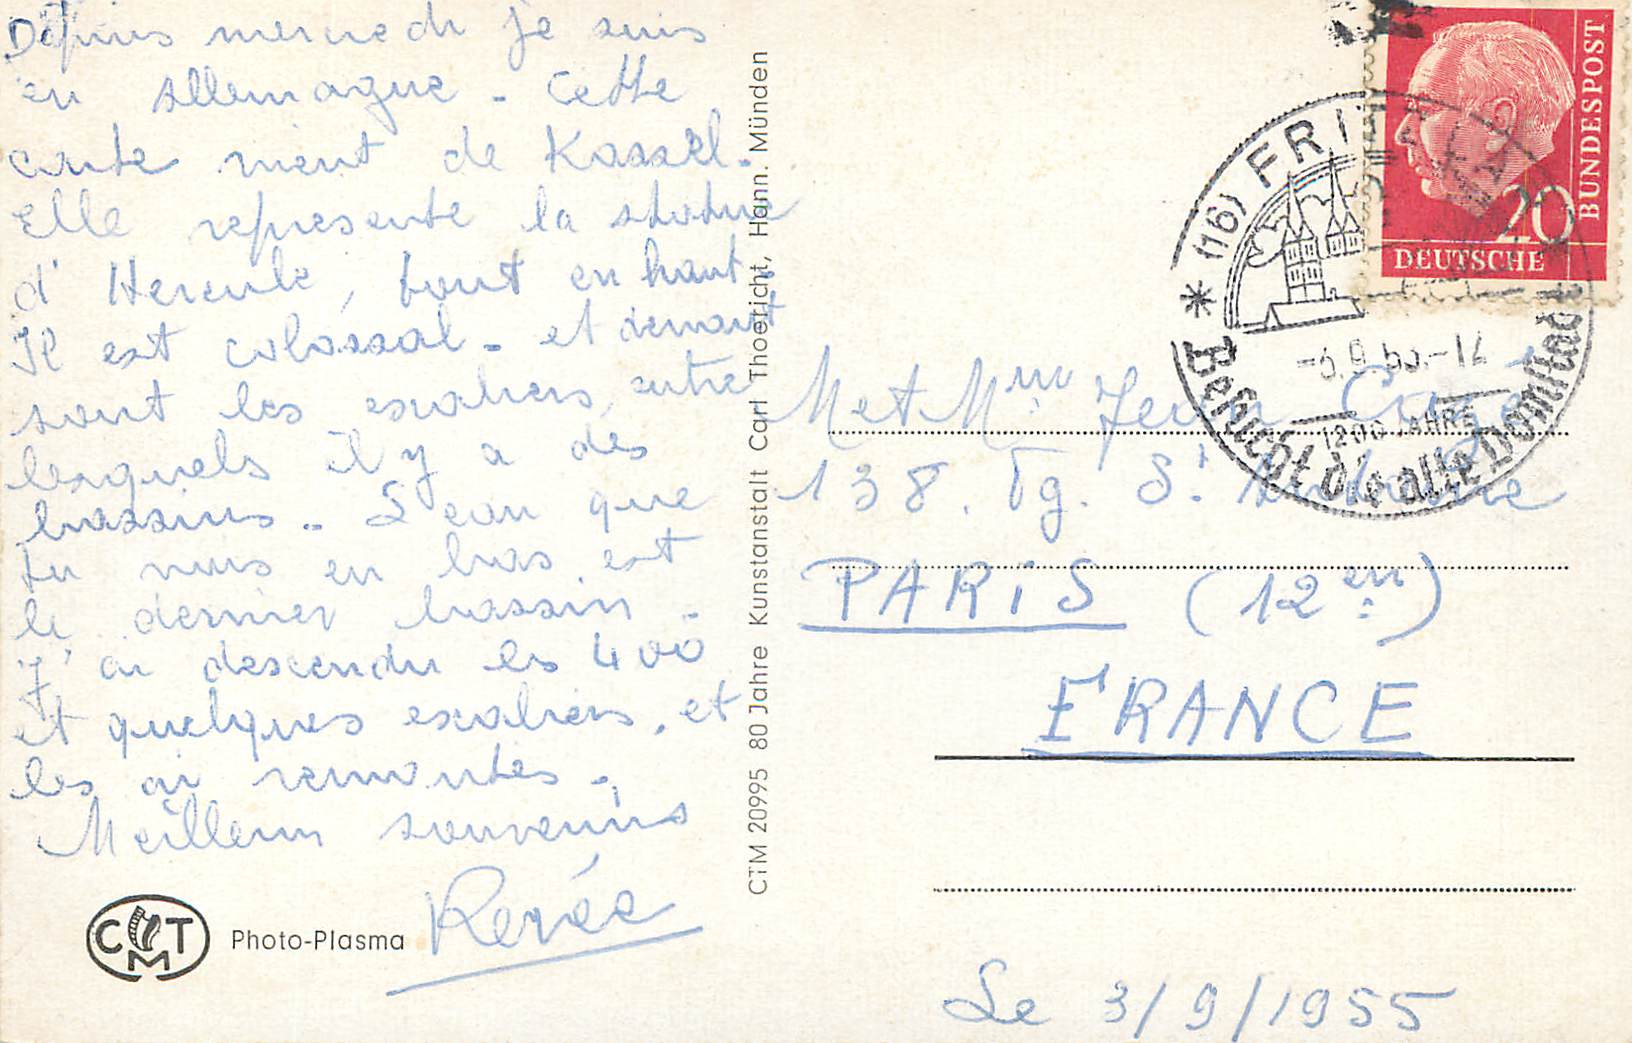 Depuis mercredi je suis
en Allemagne - Cette
carte vient de Kassel.
Elle représente la statue
d'Hercule, tout en haut.
Il est colossal - et devant
sont les escaliers, entre
lesquels il y a des
bassins - L'eau que
tu vois en bas, est
le dernier bassin -
J'ai descendu les 400
et quelques escaliers, et
les ai remontés.
Meilleurs souvenirs
Renée
CMT
Photo-Plasma
CTM 20995 80 Jahre Kunstanstalt Carl Thoericht, Hann. Münden
DEUTSCHE
BUNDESPOST
20
(16) FRITZLAR
1200 JAHRE
Besucht die alte Domstadt
M et Mme Jean
138. Fg. St. Antoine
PARIS (12em)
FRANCE
Le 3/9/1955